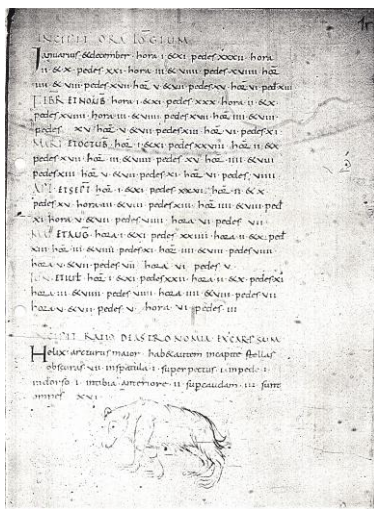 1r
INCIPIT ORALOGIUM
Ianuarius & december · hora i & xi pedes xxxii · hora
ii & x · pedes xxi · hora iii & viiii · pedes xviiii hor
iiii & viii · pedes xvii · hor v & vii · pedes xv · hor vi · ped xiii
FEBR ET NOUB · hora i & xi · pedes xxx · hora ii & x ·
pedes xviiii · hora iii & viiii · pedes xvii · hor iiii & viii ·
pedes xv hor v & vii · pedes xiii · hor vi · pedes xi ·
MART ET OCTUB · hor i & xi pedes xxviii · hor ii & x
pedes xvii · hor iii & viiii · pedes xv · hor iiii & viii
pedes xiii · hor v & vii · pedes xi · hor vi · pedes viiii
APL ET SEPT · hor i & xi · pedes xxvi · hor ii & x ·
pedes xv · hora iii & viiii · pedes xiii · hor iiii & viii · ped
xi hora v & vii · pedes viiii · hora vi · pedes vii
ET AUG · hora i & xi · pedes xxiiii · hora ii & x · ped
xiii · hor iii & viiii · pedes xi · hor iiii & viii · pedes viiii
hora v & vii · pedes vii · hora vi · pedes v ·
IUN · ET IUL · hor i & xi · pedes xxii · hora ii & x · pedes xi
hora iii & viiii · pedes viiii · hora iiii & viii · pedes vii
hora v & vii · pedes v · hora vi · pedes iii
INCIPIT RATIO DE ASTRONOMIA EXCARPSUM
Helix · arcturus maior · hab & autem in capite stellas
obscuras · vii · in spatula · i · super pectus · i · in pede · i ·
in dorso · i · in tibia anteriore · ii · sup caudam · iii · sunt
omnes · xxi ·